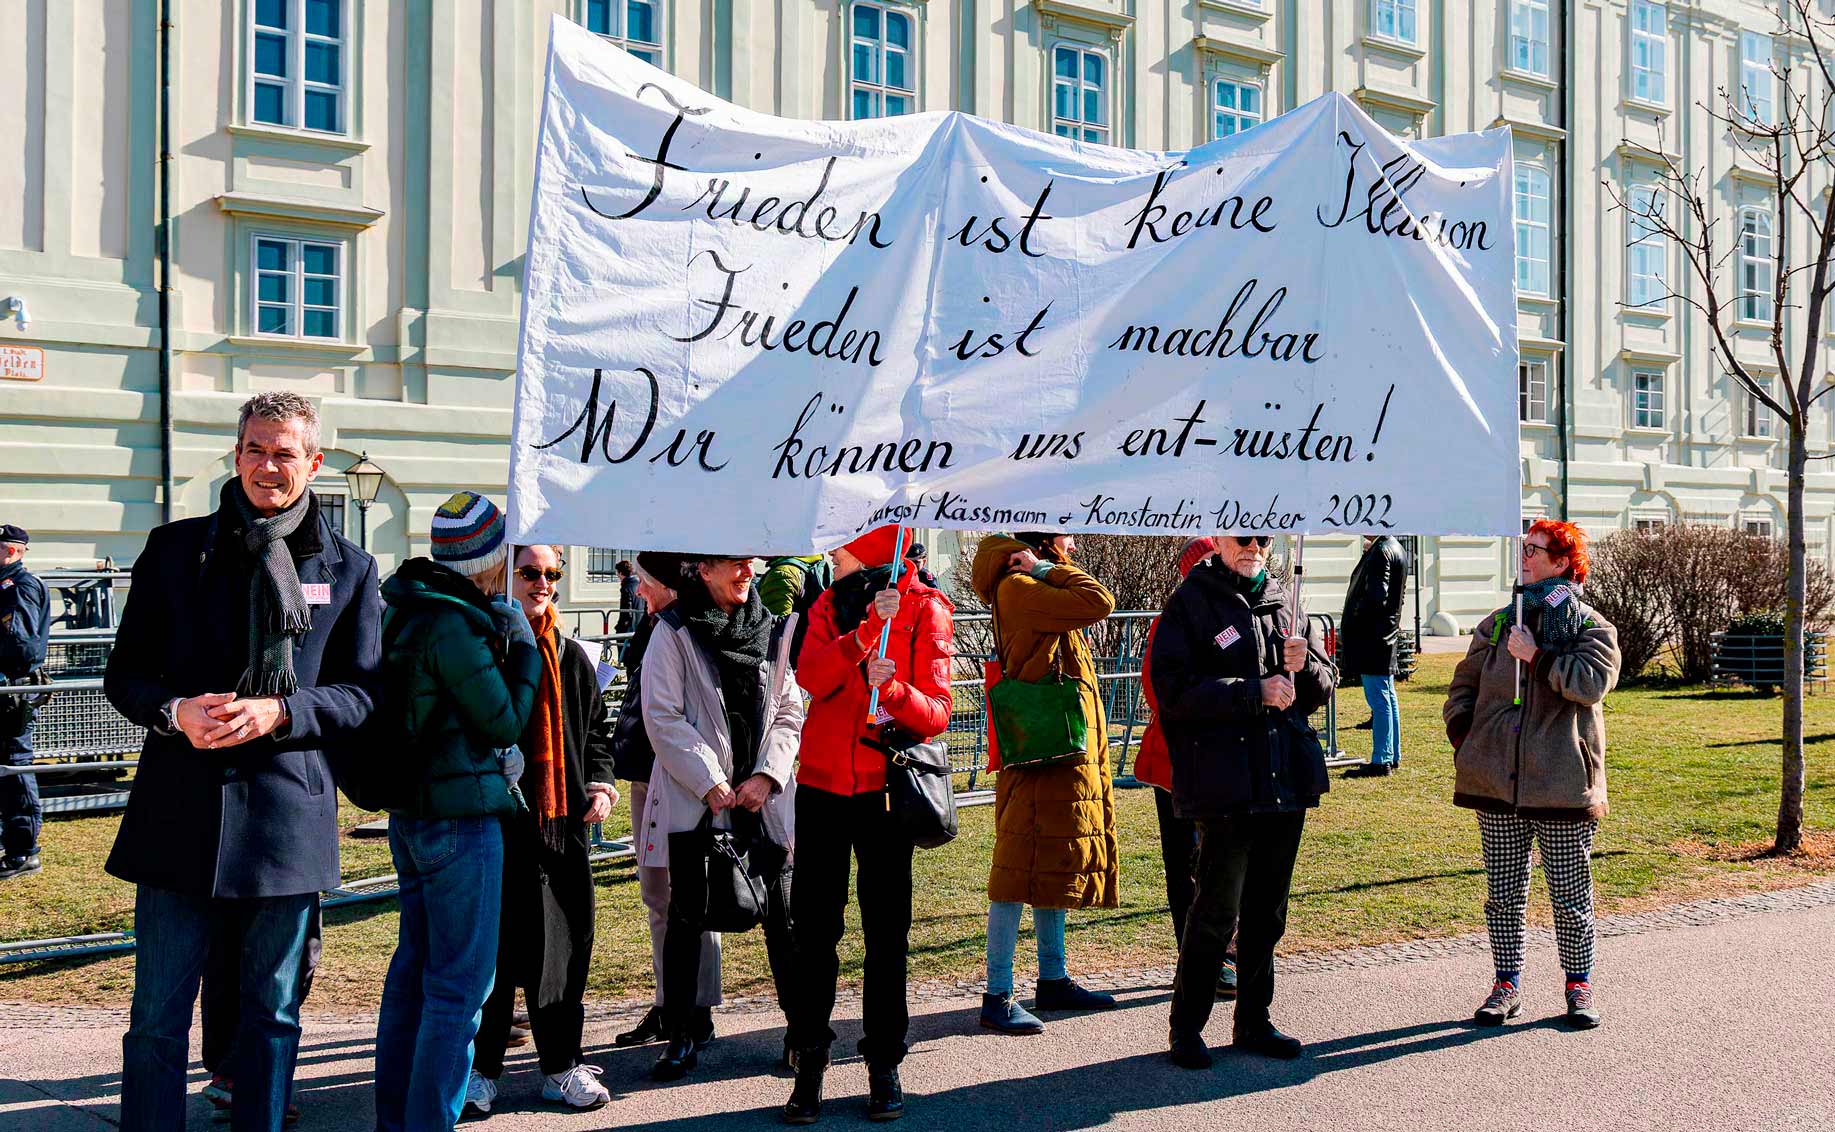 Frieden ist keine Illusion
Frieden ist machbar
Wir können uns ent-rüsten!
Margot Kässmann & Konstantin Wecker 2022
NEIN
NEIN
NEIN
1. Stadt
Platz